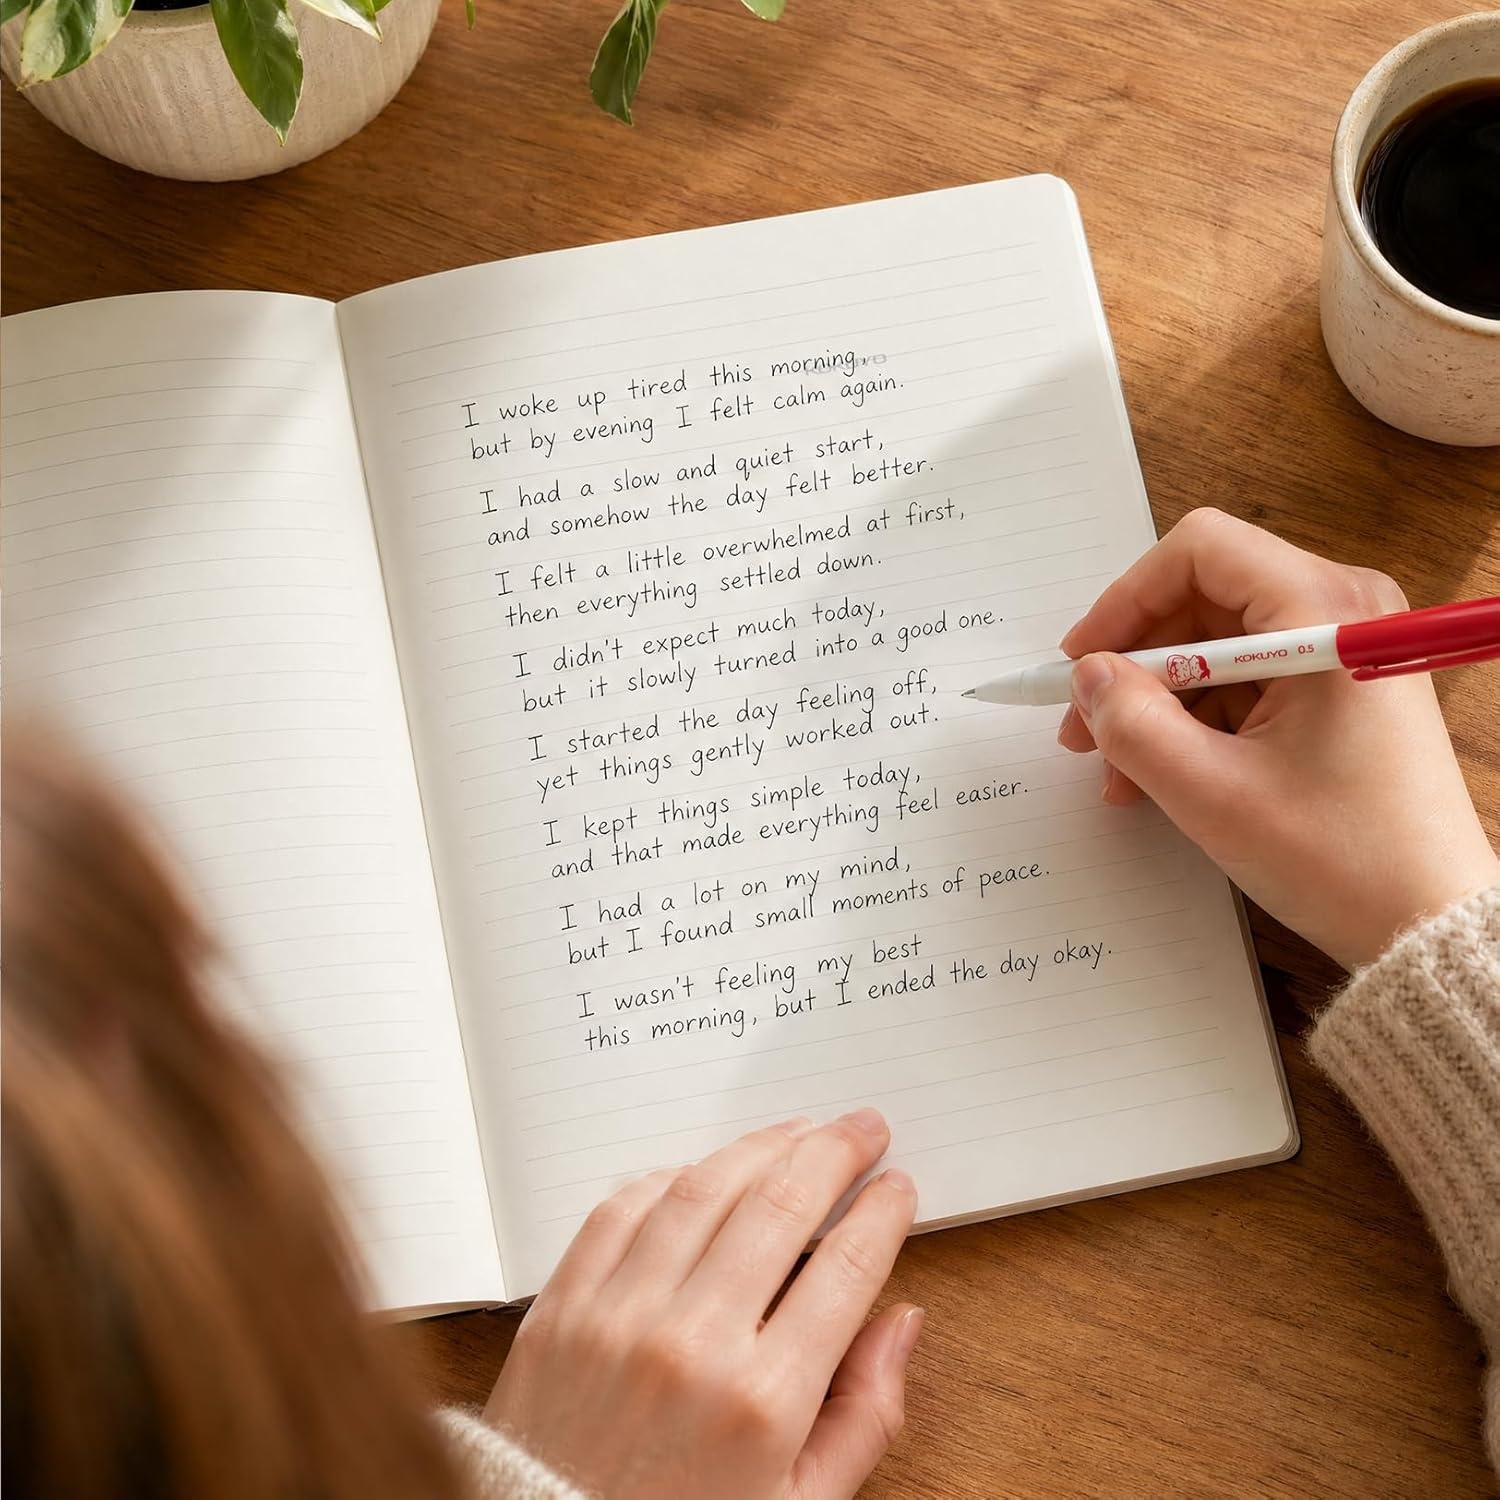 KOKUYO
I woke up tired this morning,
but by evening I felt calm again.
I had a slow and quiet start,
and somehow the day felt better.
I felt a little overwhelmed at first,
then everything settled down.
I didn't expect much today,
but it slowly turned into a good one.
I started the day feeling off,
yet things gently worked out.
I kept things simple today,
and that made everything feel easier.
I had a lot on my mind,
but I found small moments of peace.
I wasn't feeling my best
this morning, but I ended the day okay.
KOKUYO 0.5